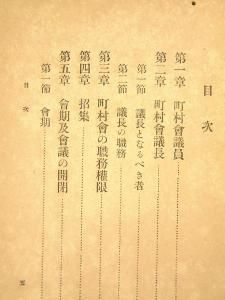 目次
第一章 町村會議員
第二章 町村會議長
第一節 議長となるべき者
第二節 議長の職務
第三章 町村會の職務權限
第四章 招集
第五章 會期及會議の開閉
第一節 會期
目次
五